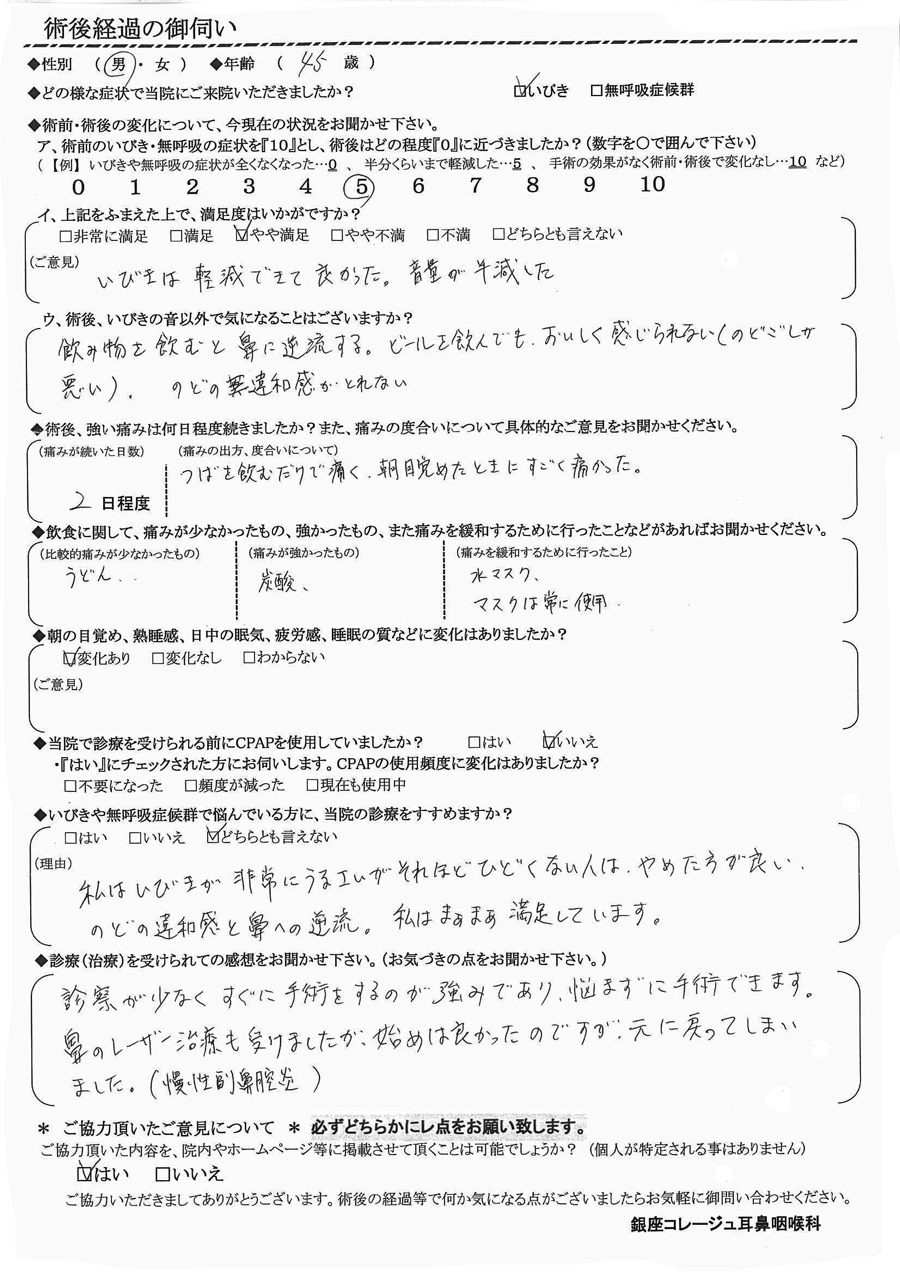 術後経過の御伺い
◆性別 ( 男・ 女 ) ◆年齢 ( 45 歳 )
◆どの様な症状で当院にご来院いただきましたか? ☑いびき □無呼吸症候群
◆術前・術後の変化について、今現在の状況をお聞かせ下さい。
ア、術前のいびき・無呼吸の症状を『10』とし、術後はどの程度『0』に近づきましたか?(数字を〇で囲んで下さい)
(【例】 いびきや無呼吸の症状が全くなくなった…0 、 半分くらいまで軽減した…5 、 手術の効果がなく術前・術後で変化なし…10 など)
0 1 2 3 4 5 6 7 8 9 10
イ、上記をふまえた上で、満足度はいかがですか?
□非常に満足 □満足 ☑やや満足 □やや不満 □不満 □どちらとも言えない
(ご意見)
いびきは 軽減できて 良かった。 音量が 半減した
ウ、術後、いびきの音以外で気になることはございますか?
飲み物を 飲むと 鼻に逆流する。 ビールを飲んでも、おいしく 感じられない(のどごしが
悪い)、 のどの 違和感がとれない
◆術後、強い痛みは何日程度続きましたか?また、痛みの度合いについて具体的なご意見をお聞かせください。
(痛みが続いた日数) (痛みの出方、度合いについて)
つばを飲むだけで痛く、朝目覚めたときにすごく痛かった。
2 日程度
◆飲食に関して、痛みが少なかったもの、強かったもの、また痛みを緩和するために行ったことなどがあればお聞かせください。
(比較的痛みが少なかったもの) (痛みが強かったもの) (痛みを緩和するために行ったこと)
うどん、、 炭酸、 水マスク、
マスクは常に使用.
◆朝の目覚め、熟睡感、日中の眠気、疲労感、睡眠の質などに変化はありましたか?
☑変化あり □変化なし □わからない
(ご意見)
◆当院で診療を受けられる前にCPAPを使用していましたか? □はい ☑いいえ
・『はい』にチェックされた方にお伺いします。CPAPの使用頻度に変化はありましたか?
□不要になった □頻度が減った □現在も使用中
◆いびきや無呼吸症候群で悩んでいる方に、当院の診療をすすめますか?
□はい □いいえ ☑どちらとも言えない
(理由)
私はいびきが 非常にうるさいがそれほどひどくない人は、やめた方が良い、
のどの違和感と鼻への逆流。 私はまぁまぁ満足しています。
◆診療(治療)を受けられての感想をお聞かせ下さい。(お気づきの点をお聞かせ下さい。)
診察が少なく すぐに手術をするのが強みであり、悩まずに手術できます。
鼻のレーザー治療も受けましたが、始めは良かったのですが、元に戻ってしまい
ました。(慢性副鼻腔炎)
* ご協力頂いたご意見について * 必ずどちらかにレ点をお願い致します。
ご協力頂いた内容を、院内やホームページ等に掲載させて頂くことは可能でしょうか? (個人が特定される事はありません)
☑はい □いいえ
ご協力いただきましてありがとうございます。術後の経過等で何か気になる点がございましたらお気軽に御問い合わせください。
銀座コレージュ耳鼻咽喉科